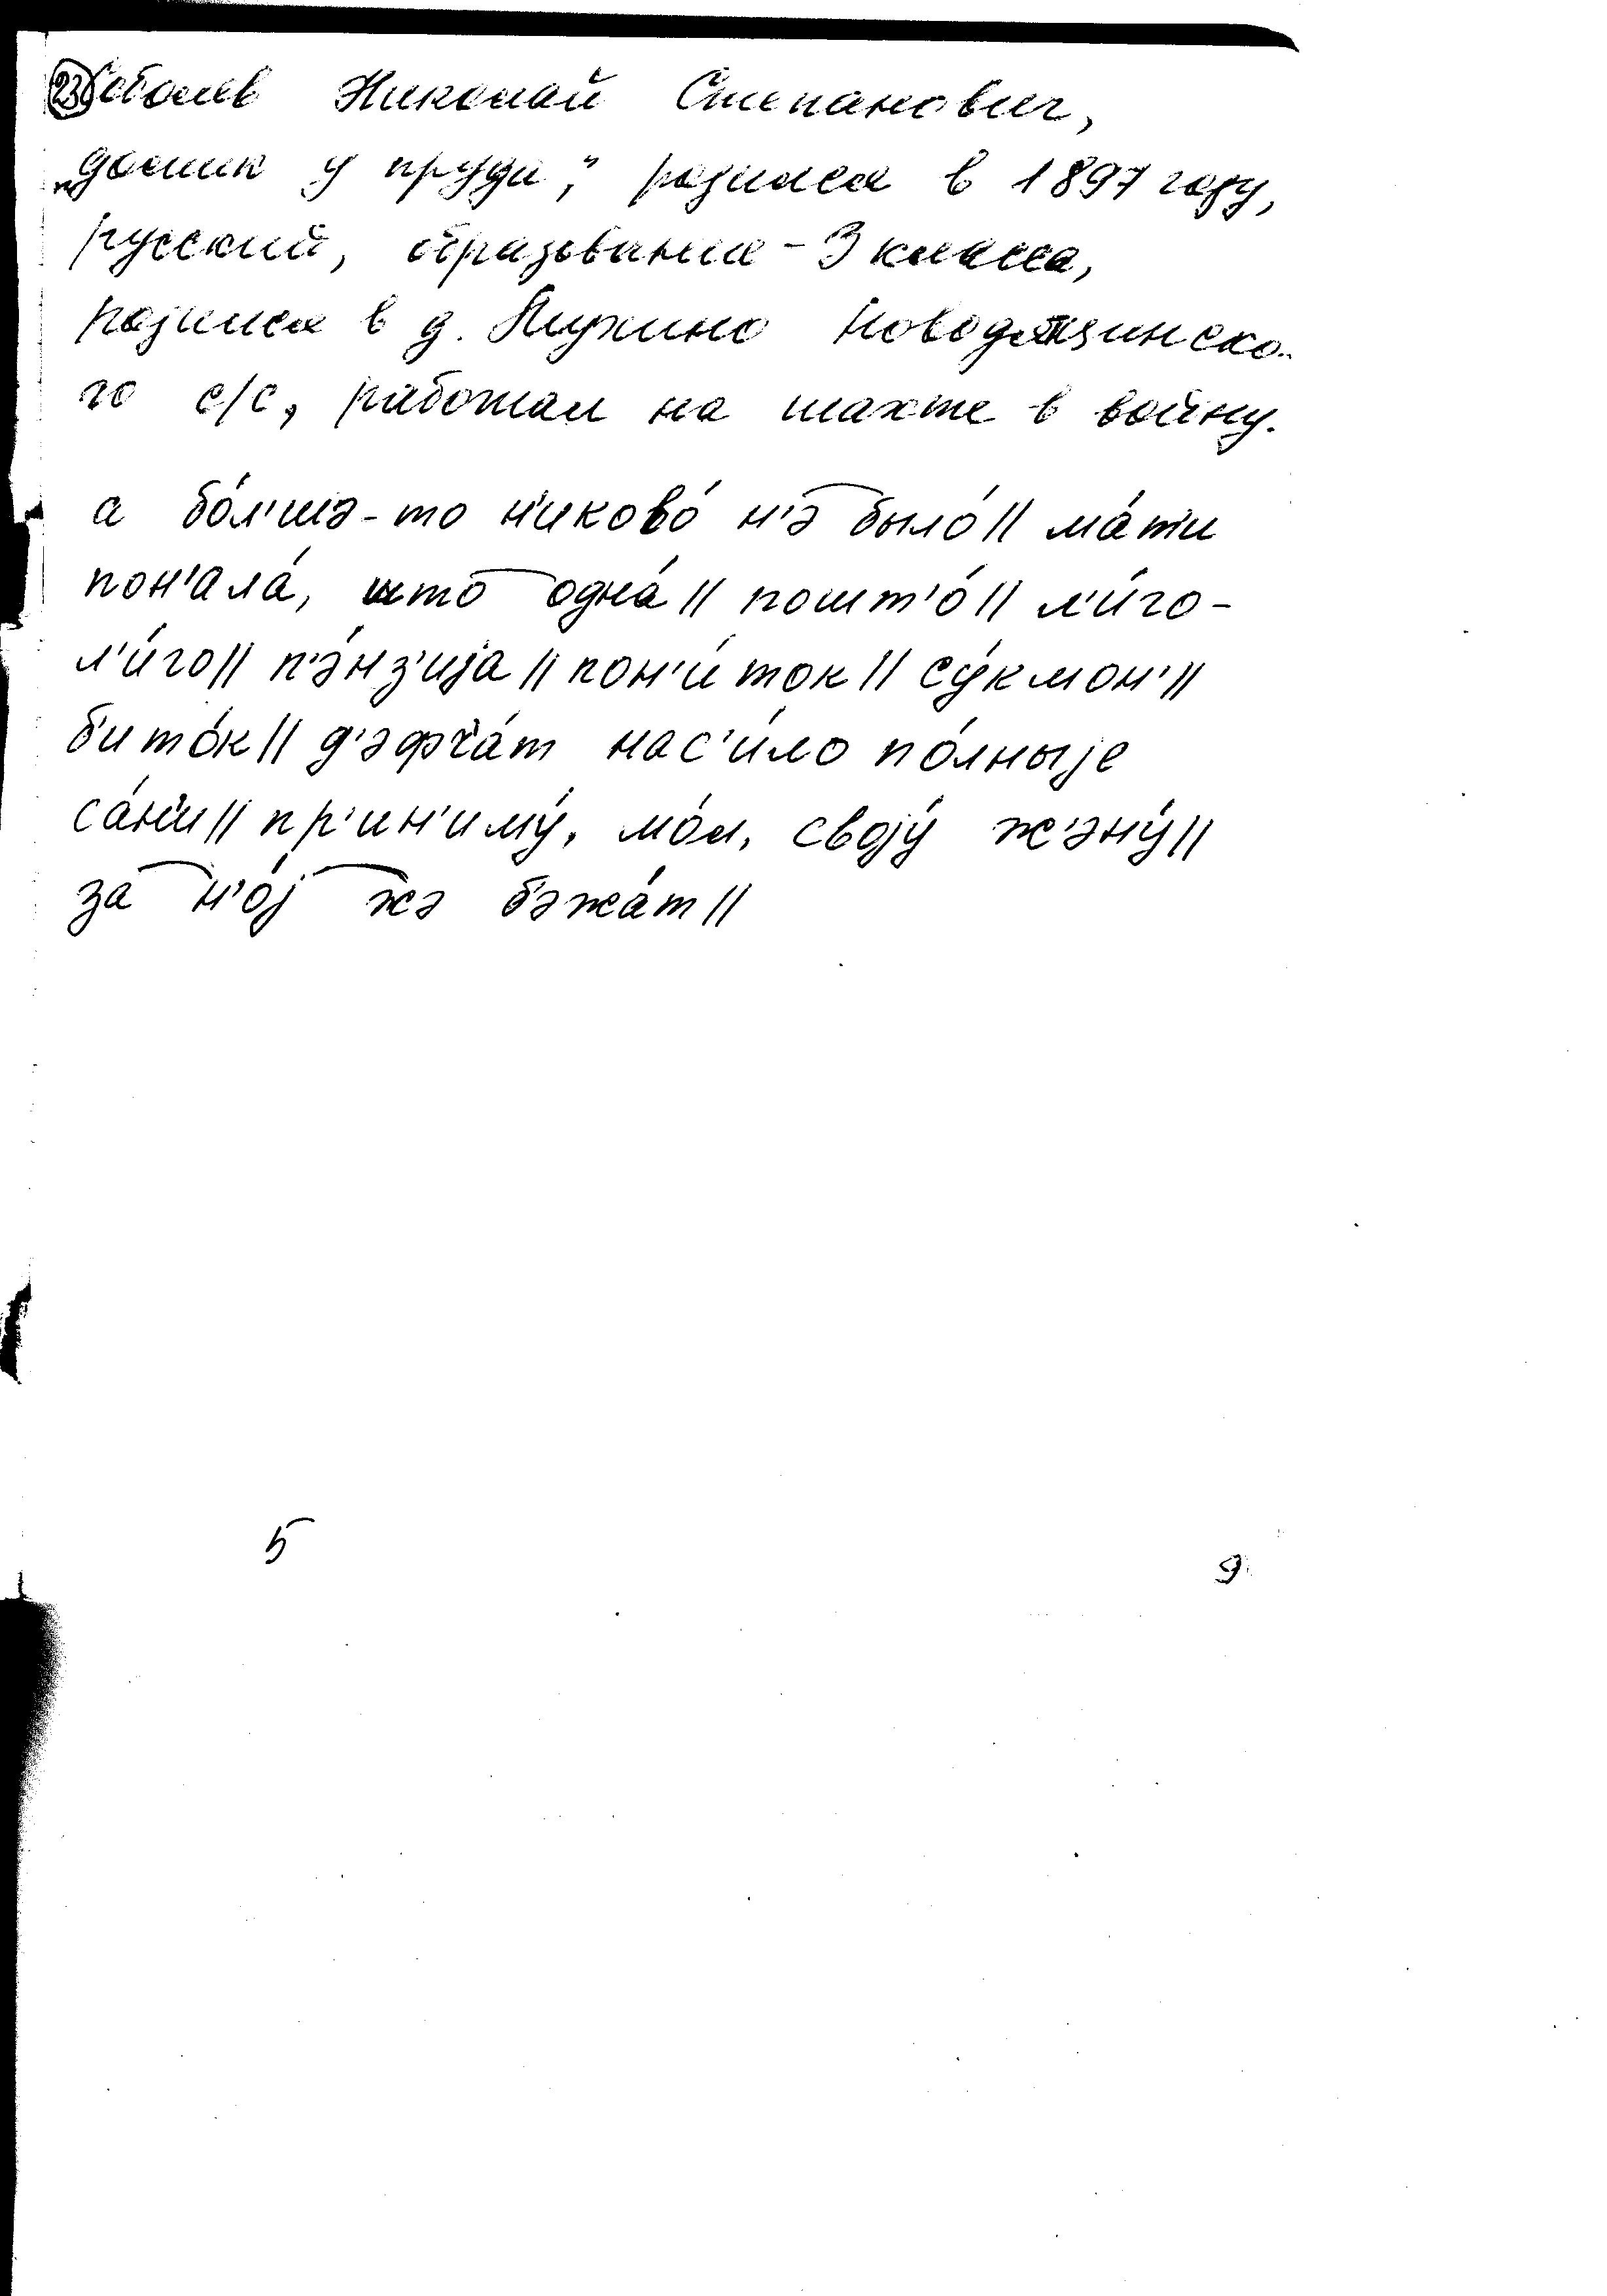 23 Соболев Николай Степанович,
„домик у пруда“, родился в 1897 году,
русский, образование - 3 класса,
родился в д. Пужино Новодемзинско-
го с/с, работал на шахте в войну.
а бо́л'шэ-то н'иково́ н'э͡ было́ || ма́т'и
пон'ала́, што͡ одна́ || пошт'о́ || л'и́го-
л'и́го || п'э́нз'иjа || пон'и́ток || су́кмон' ||
б'ито́к || д'эфч'а́т нас'и́ло по́лныjе
са́н'и || пр'ин'иму́, мо́л, своjу́ ж'эну́ ||
за͡ н'о́j͡ жэ б'эжа́т ||
5
9